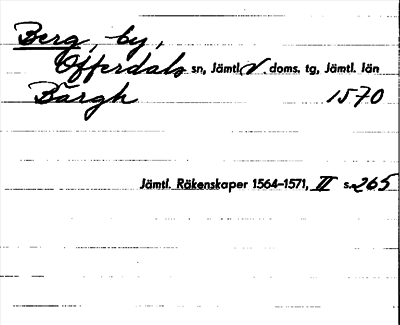 Berg, by,
Offerdals sn, Jämtl. V doms. tg, Jämtl. län
Bärgh 1570
Jämtl. Räkenskaper 1564–1571, III s. 265